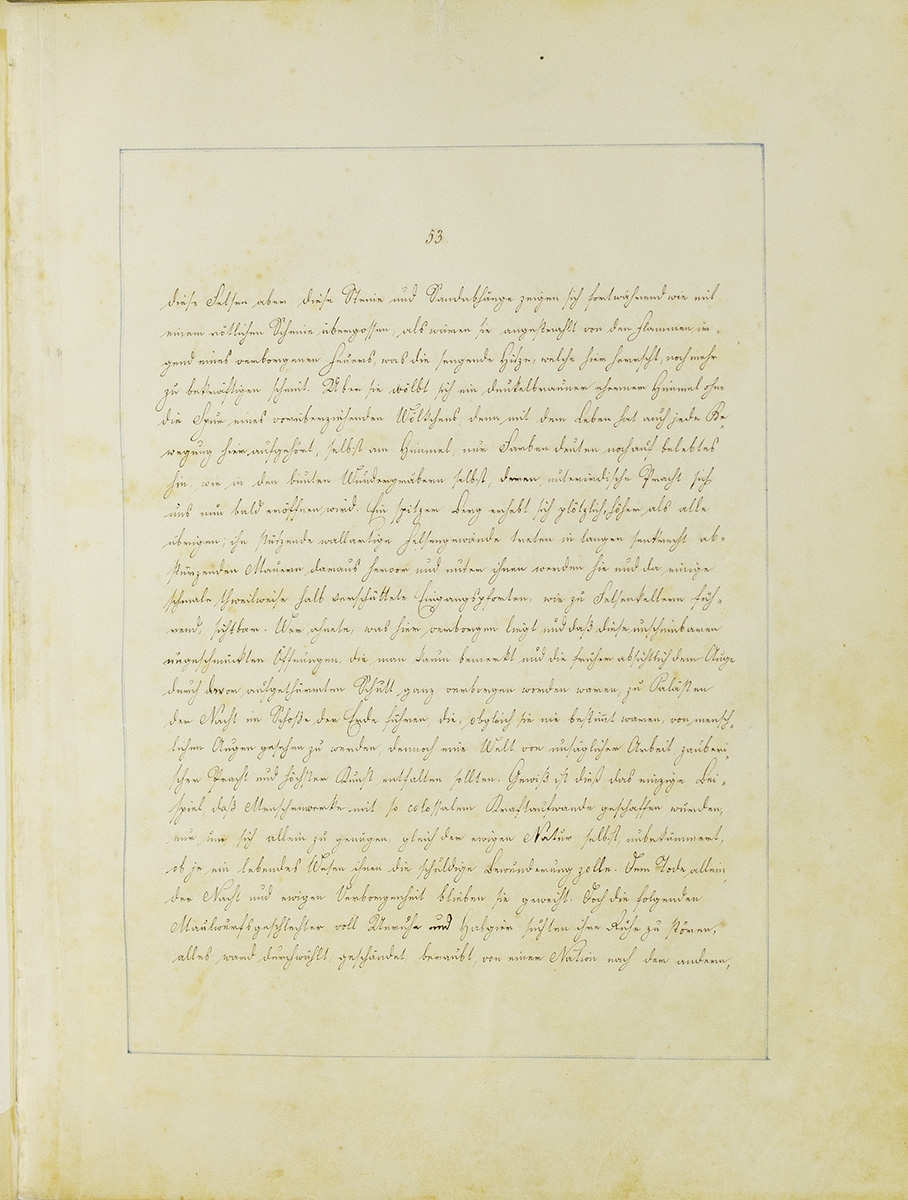 53.
diese Felsen aber, diese Steine und Sandabhänge zeigen sich fortwährend wie mit
einem rötlichen Scheine übergossen, als wären sie angestrahlt von den Flammen ir-
gend eines verborgenen Feuers, was die sengende Hitze, welche hier herrscht, noch mehr
zu bekräftigen scheint. Über sie wölbt sich ein dunkelbrauner eherner Himmel ohne
die Spur eines vorüberziehenden Wölkchens, denn mit dem Leben hat auch jede Be-
wegung hier aufgehört, selbst am Himmel, nur Farben deuten noch auf belebtes
hin, wie in den bunten Wundergräbern selbst, deren unterirdische Pracht sich
uns nun bald eröffnen wird. Ein spitzer Berg erhebt sich plötzlich höher als alle
übrigen; ihn stützende wallartige Felsengewände treten in langen senkrecht ab-
stürzenden Mauern daraus hervor und unter ihnen werden hie und da, einige
schmale theilweise halb verschüttete Eingangspforten, wie zu Felsenkellern füh-
rend, sichtbar. Wer ahnete, was hier verborgen liegt und daß diese unscheinbaren
ungeschmückten Öffnungen, die man kaum bemerkt und die früher absichtlich dem Auge
durch davor aufgethürmten Schutt ganz verborgen worden waren, zu Palästen
der Nacht im Schoße der Erde führen, die, obgleich sie nie bestimt waren, von mensch-
lichen Augen gesehen zu werden, dennoch eine Welt von unsäglicher Arbeit zauberi-
scher Pracht und höchster Kunst entfalten sollten. Gewiß ist dieß das einzige Bei-
spiel, daß Menschenwerke mit so colossalem Kraftaufwande geschaffen wurden,
nur um sich allein zu genügen, gleich der ewigen Natur selbst, unbekümmert,
ob je ein lebendes Wesen ihnen die schuldige Bewunderung zolle. Dem Tode allein
der Nacht und ewigen Verborgenheit blieben sie geweiht. Doch die folgenden
Maulwurfsgeschlechter voll Unruhe und Habgier suchten ihre Ruhe zu stören,
alles ward durchwühlt, geschändet, beraubt, von einer Nation nach der andern,